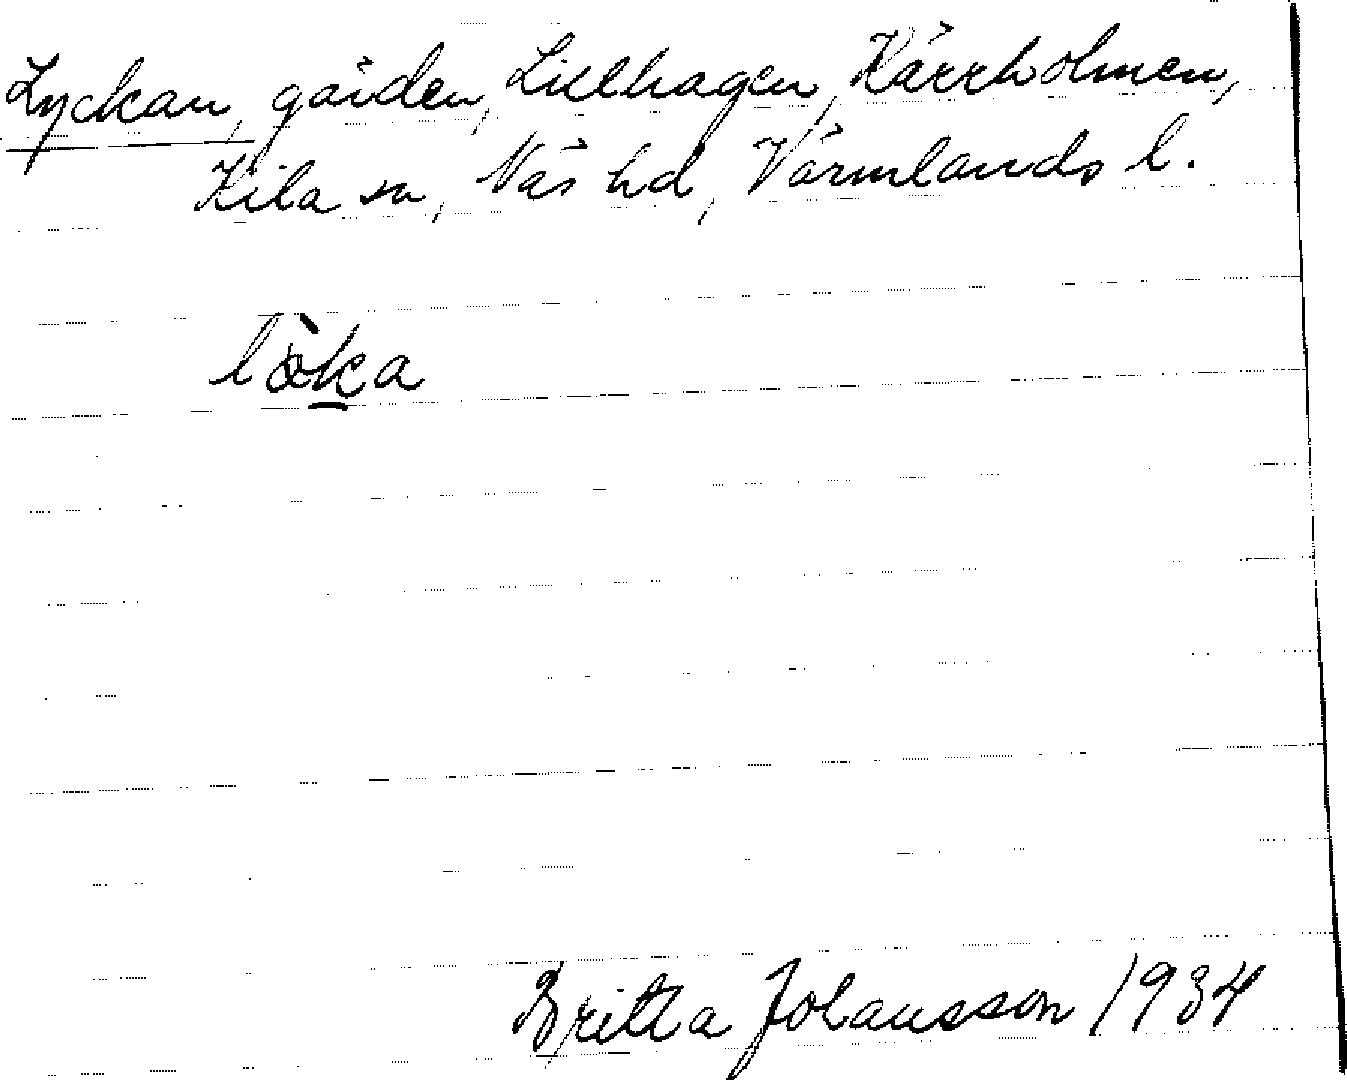 Lyckan, gården, Lillhagen, Kärrholmen,
Kila sn, Näs hd, Värmlands l.
lòka
Britta Johansson 1934